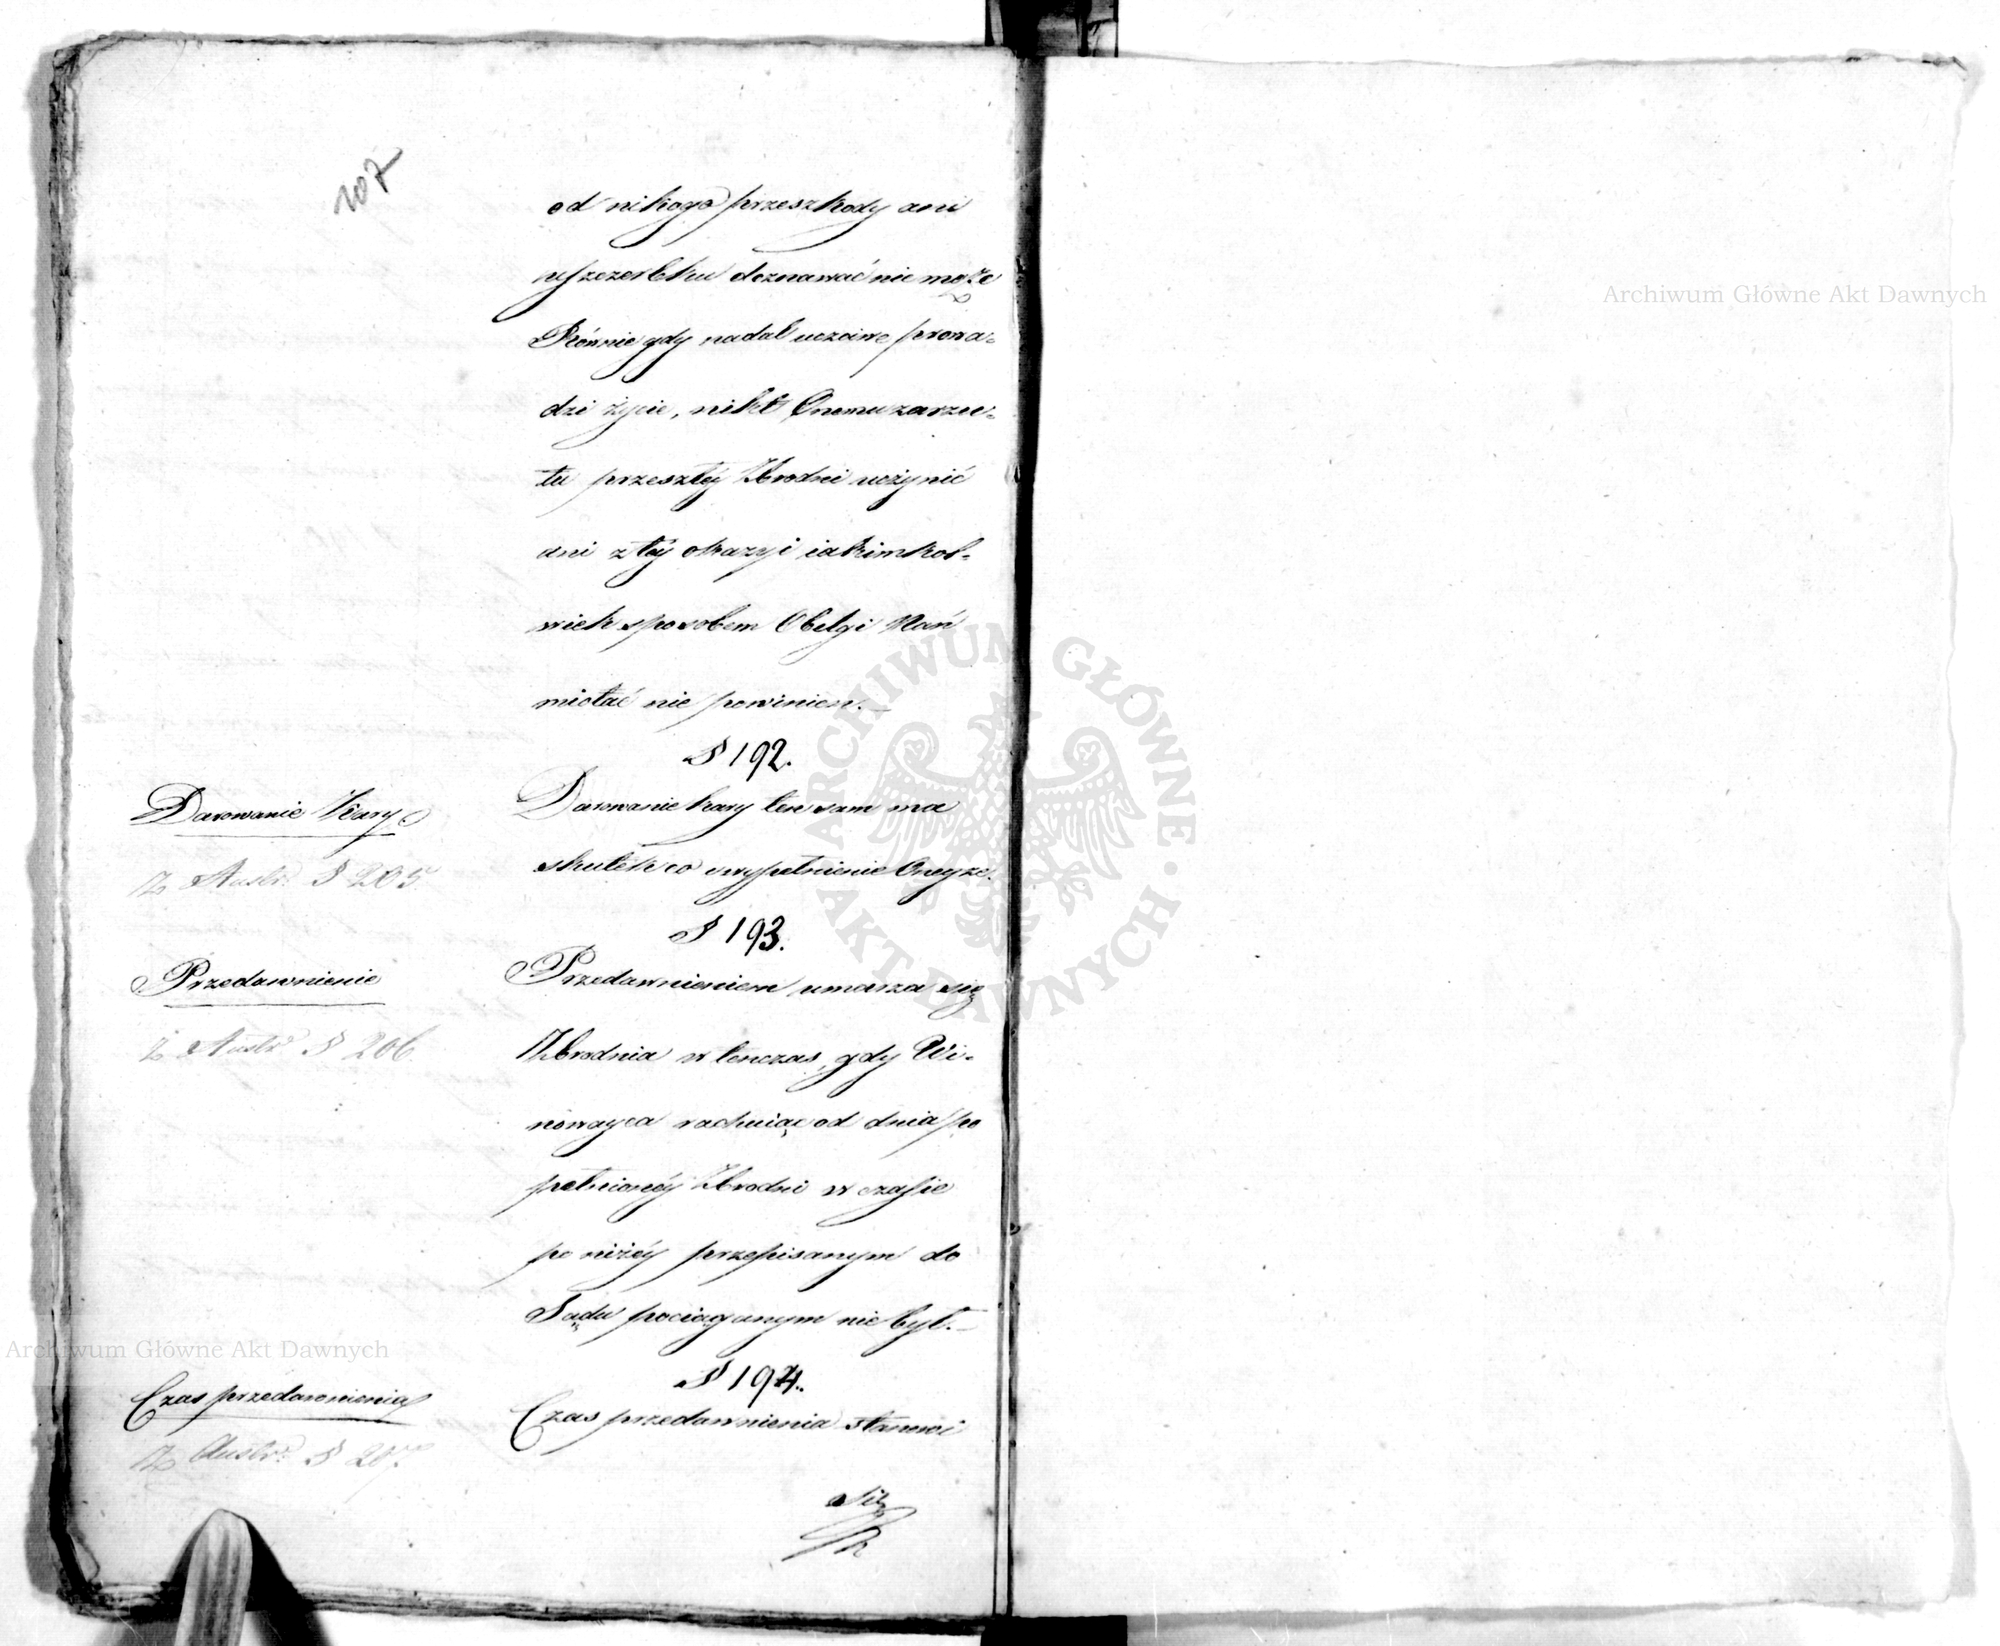 107
od nikogo przeszkody ani
uszczerbku doznawać nie może
Równie gdy nadal uczciwe prowa-
dzi życie, nikt Onemu zarzu-
tu przeszłéj Zbrodni uczynić
ani z téj okazyi iakimkol-
wiek sposobem Obelgi Nań
miotać nie powinien.
§ 192.
Darowanie Kary
Z Austr. § 205.
Darowanie kary ten sam ma
skutek co wypełnienie Oneyże.
§ 193.
Przedawnienie
Z Austr. § 206.
Przedawnieniem umarza się
Zbrodnia w tenczas, gdy Wi-
nowayca rachuiąc od dnia po
pełnionéy Zbrodni w czasie
po niżéy przepisanym do
Sądu pociąganym nie był.
§ 194.
Czas przedawnienia
Z Austr. § 207.
Czas przedawnienia stanowi
się
Archiwum Główne Akt Dawnych
Archiwum Główne Akt Dawnych
ARCHIWUM GŁÓWNE · AKT DAWNYCH ·